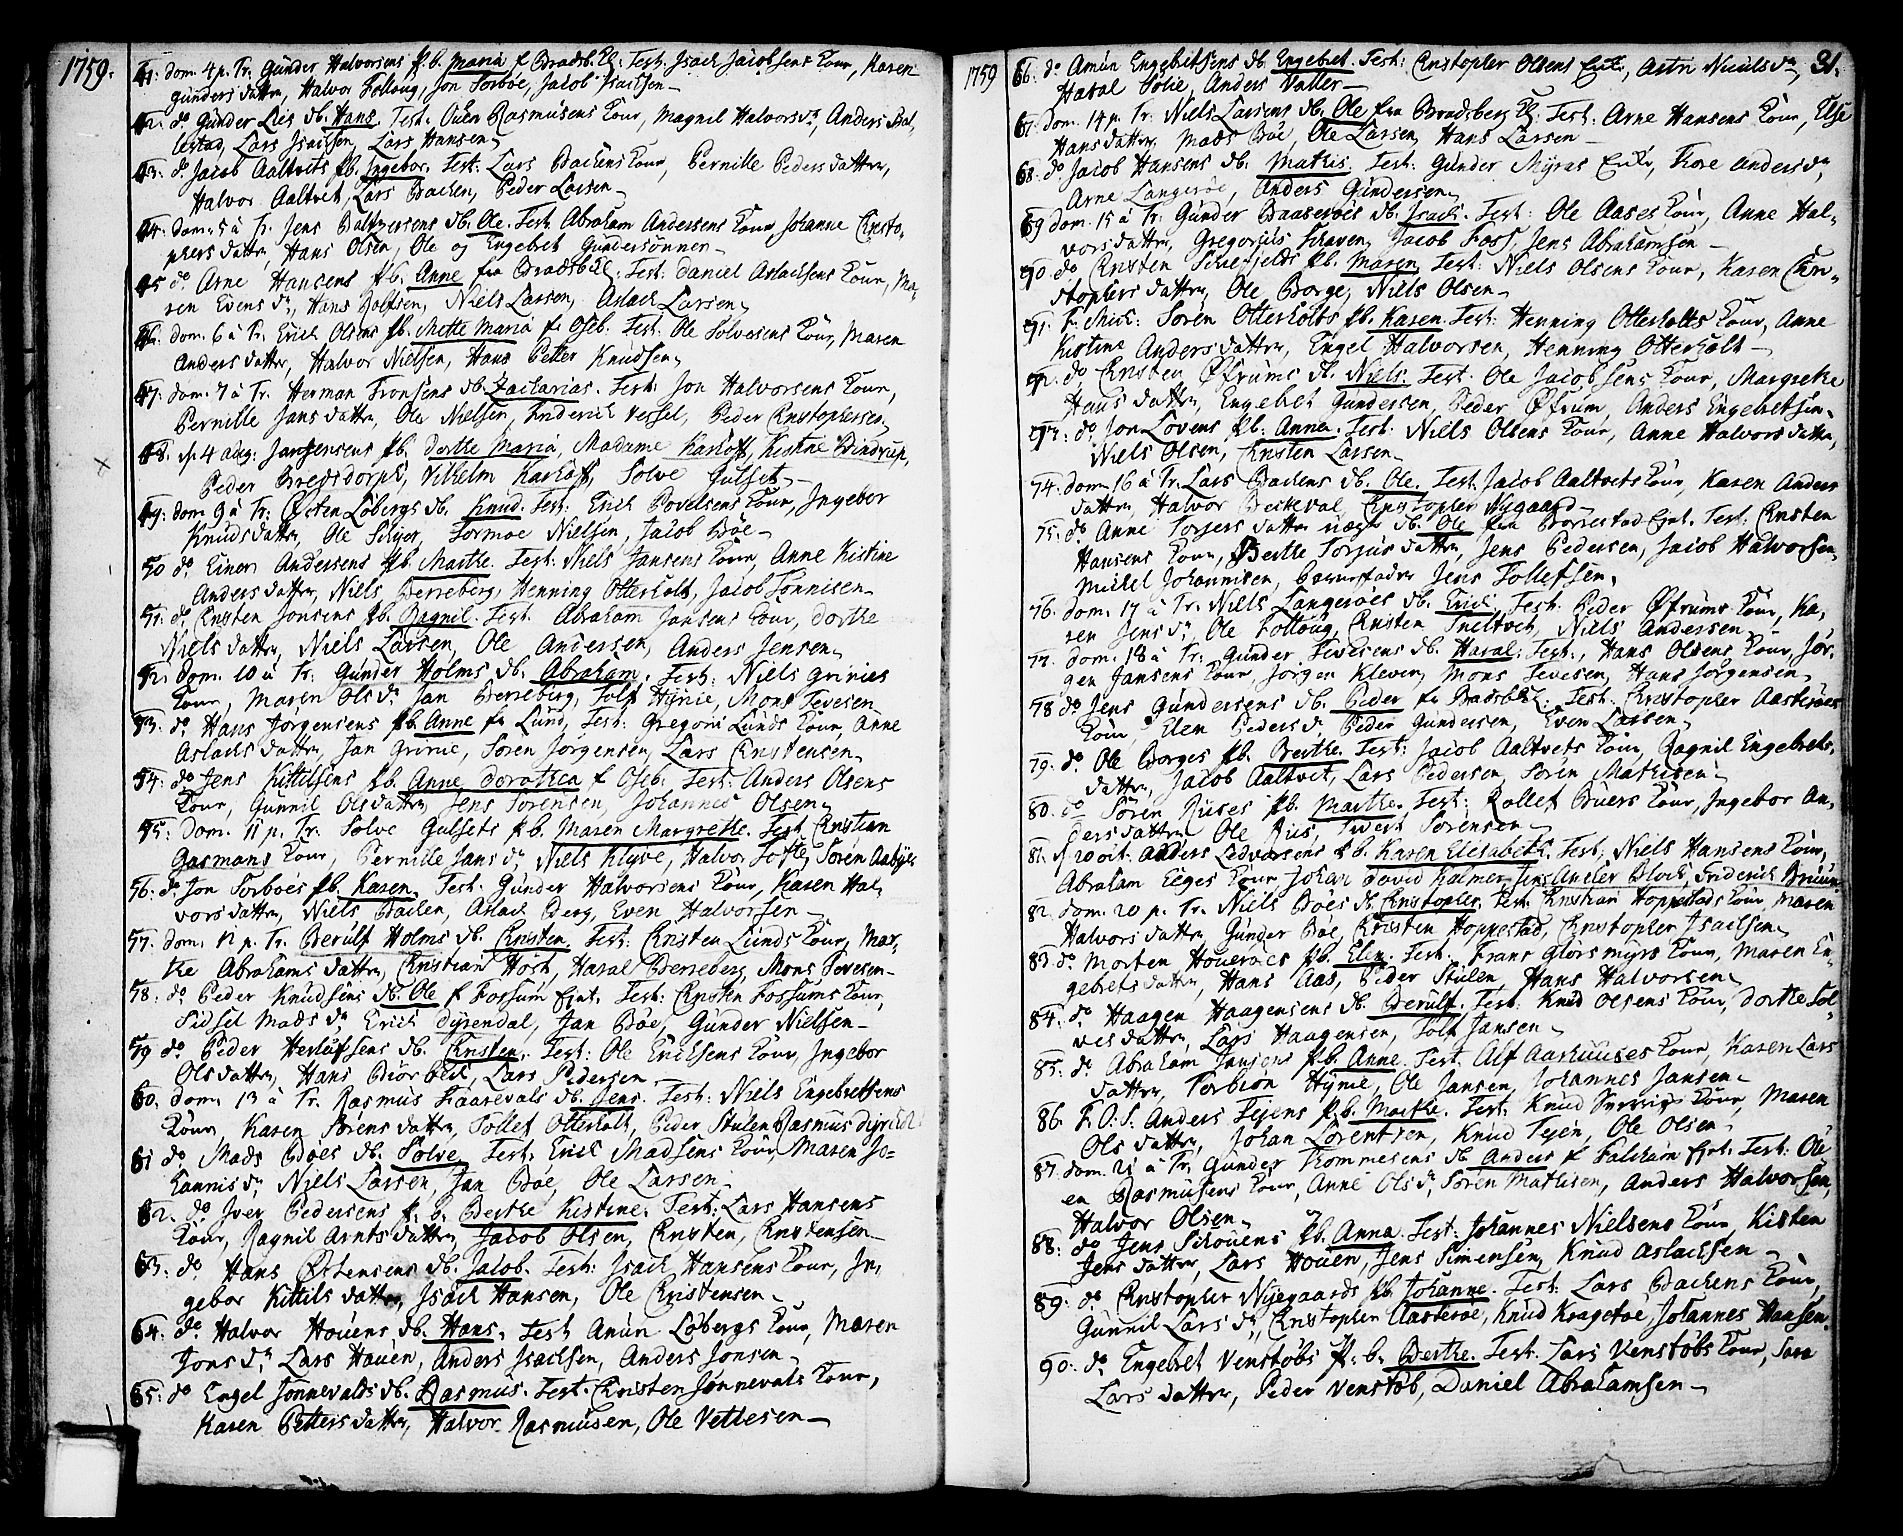 1759.
41. dom. 4 p. Tr. Gunder Halvorsens pb. Maria f Bradsb. Test: Isach Jacobsens Kone, Karen
Gunders datter, Halvor Follaug, Jon Torboe, Jacob Isachsen
42. do Gunder Lies db. Hans. Test. Ouen Rasmusens Kone, Magnil Halvorsdr, Anders Bal,
lestad, Lars Isachsen, Lars Hansen
43. do Jacob Aaltvets pb. Ingebor. Test: Lars Backens Kone, Pernille Peders datter,
Halvor Aaltvet, Lars Backen, Peder Larsen
44. dom. 5 à Tr. Jens Baltzersens db. Ole. Test. Abraham Andersens Kone, Johanne Christo-
phers datter, Hans Olsen, Ole og Engebret Gundersønner
45 do Arne Hansens pb. Anne fra Bradsb. Test: Daniel Aslachsens Kone, Ma-
ren Evens dr, Hans Rolfsen, Niels Larsen, Aslach Larsen
46. dom. 6 à Tr. Erich Olsens pb. Mette Maria f. Oseb. Test. Ole Solvesens Kone, Maren
Anders datter, Halvor Nielsen, Hans Petter Knudsen
47. dom. 7 à Tr. Herman Fronsens db. Zacharias. Test: Jon Halvorsens Kone,
Pernille Jans datter, Ole Nielsen, Friderich Vessel, Peder Christophersen
48. d. 4 aug: Jan Jensens pb. Dorthe Maria, Madame Karhoff, Kistine Bindrup,
Peder Bregsdorph, Vilhelm Karhoff, Solve Gulset
49. dom 9 à Tr. Østen Løbergs db. Knud. Test: Erich Povelsens Kone, Ingebor
Knuds datter, Ole Skyer, Tormoe Nielsen, Jacob Bøe
50 do Einer Andersens pb. Marthe. Test. Niels Jansens Kone, Anne Kistine
Anders datter, Niels Berreberg, Henning Otterholt, Jacob Tonnisen
51. do Christen Jonsens pb. Ragnil. Test. Abraham Jansens Kone, Dorthe
Niels datter, Niels Larsen, Ole Andersen, Anders Jensen
52. Dom. 10 à Tr. Gunder Holms db. Abraham. Test: Niels Grinies
Kone, Maren Ols dr Jan Berreberg, Tolf Hynie, Mons Tevesen
53. do Hans Jørgensens pb. Anne fr Lund, Test: Gregori Lunds Kone, Anne
Aslachs datter, Jan Grinie, Søren Jørgensen, Lars Christensen
54. do Jens Kittilsens pb. Anne Dorothea f Oseb. Test: Anders Olsens
Kone, Gunnil Ols datter, Jens Sørensen, Johannes Olsen
55: Dom. 11 p. Tr. Solve Gulsets pb. Maren Margrethe. Test Christian
Gasmans Kone, Pernille Jans dr Niels Klyve, Halvor Tofte, Søren Aabyes
56. do Jon Torboes pb. Karen. Test. Gunder Halvorsens Kone, Karen Hal,
vors datter, Niels Backen, Aslach Berg, Even Halvorsen
57. dom. 12 p. Tr. Berulf Holms db. Christen. Test: Christen Lunds Kone, Mar,
the Abrahams datter, Christian Høst, Haral Berreberg, Mons Tevesen
58. do Peder Knudsens db. Ole f Fossum Ejnt. Test: Christen Fossums Kone,
Sidsel Mads dr Erich Dyrendal, Jan Bøe, Gunder Nielsen
59 do Peder Herlofsens db. Christen. Test: Ole Erichsens Kone, Ingebor
Ols datter, Hans Biørbech, Lars Pedersen
60. dom. 13 à Tr. Rasmus Faarevals db. Jens. Test: Niels Engebretsens
Kone, Karen Sørens datter, Tollef Otterholt, Peder Stulen, Rasmus
61 do Mads Bøes db. Solve. Test: Erich Madsens Kone, Maren Jo-
hannis dr Niels Larsen, Jan Bøe, Ole Larsen
62. do Iver Pedersens p. b. Berthe Kistine. Test: Lars Hansens
Kone, Ragnil Arnts datter, Jacob Olsen, Christen, Christensen
63. do Hans Østensens db. Jacob. Test: Isach Hansens Kone, In,
gebor Kittils datter, Isach Hansen, Ole Christensen
64. do Halvor Houens db. Hans. Test Amun Løbergs Kone, Maren
Jons dr Lars Houen, Anders Isachsen, Anders Jonsen
65: do Engel Jønnevalds db. Rasmus. Test. Christen Jønnevals Kone,
Karen Petters datter, Halvor Rasmusen, Ole Vettesen
1759
31.
66. do Amun Engebretsens db Engebret. Test: Christopher Olsens, Niels dr
Haral Solie, Anders Valler
67. dom. 14 p. Tr. Niels Larsens db. Ole fra Bradsberg. Test: Arne Hansens Kone, Else
Hans datter, Mads Bøe, Ole Larsen, Hans Larsen
68. do Jacob Hansens db. Mathis. Test: Gunder Myras, Thore Anders dr
Arne Langerøe, Anders Gundersen
69 dom. 15 à Tr. Gunder Baaserøes db. Isach. Test: Ole Aases Kone, Anne Hal-
vors datter, Gregorius Skaven, Jacob Foss, Jens Abrahamsen
70. do Christen pb. Maren. Test: Niels Olsens Kone, Karen Chri-
stophers datter, Ole Borge, Niels Olsen
71. F. Mich: Søren Otterholts pb. Karen. Test: Henning Otterholts Kone, Anne
Kistine Anders datter, Engel Halvorsen, Henning Otterholt
72. do Christen Øfrums db. Niels. Test: Ole Jacobsens Kone, Margrethe
Hans datter, Engebret Gundersen, Peder Øfrum, Anders Engebretsen
73. do Jon Lovens pb. Anne. Test: Niels Olsens Kone, Anne Halvors datter,
Niels Olsen, Christen Larsen
74. dom 16 à Tr. Lars Backens db. Ole. Test. Jacob Aaltvets Kone, Karen Anders
datter, Halvor, Christopher Nygaard
75. do Anne Torjers datter uægte db. Ole fra Borrestad Ejnt. Test: Christen
Hansens Kone, Berthe Torjus datter, Jens Pedersen, Jacob Halvorsen,
Michel Johannisen, Barnefader Jens Tollefsen
76. dom. 17 à Tr. Niels Langerøes db. Erich, Test. Peder Øfrums Kone, Ka,
ren Jens dr, Ole Follaug, Christen, Niels Andersen
77. dom. 18 à Tr. Gunder Tevesens db. Haral. Test., Hans Olsens Kone, Jør-
gen Jansens Kone, Jørgen Kleven, Mons Tevesen, Hans Jørgensen
78 do Jens Gundersens db. Peder fr Bradsb: Test. Christopher Aasterøes
Kone, Elen Peders dr Peder Gundersen, Even Larsen
79. do Ole Borges pb. Berthe. Test: Jacob Aaltvets Kone, Ragnil Engebrets-
datter, Jacob Aaltvet, Lars Pedersen, Søren Mathisen
80. do Søren Riises pb. Marthe. Test: Rollef Buers Kone, Ingebor An-
ders datter, Ole Riis, Sivert Sørensen
81. d 20 oct. Anders Ledvorsens pb. Karen Elisabeth. Test: Niels Hansens Kone,
Abraham Eeges Kone, Johan David Kalmer, Jens Ancher Bloch, Friderich Bruun
82. dom. 20 p. Tr. Niels Bøes db. Christopher. Test. Christian Hoppestads Kone, Maren
Halvors datter, Gunder Bøe, Christen Hoppestad, Christopher Isachsen
83. do Morten Houerøes pb. Elen. Test: Frans Glørsmyrs Kone, Maren En-
gebrets datter, Hans Aas, Peder Stulen, Hans Halvorsen
84. do Haagen Haagensens db. Berulf. Test. Knud Olsens Kone, Dorthe Sol-
ves datter, Lars Haagensen, Tolf Jansen
85. do Abraham Jansens pb. Anne. Test. Alf Aashuuses Kone, Karen Lars
datter, Torbion Hynie, Ole Jansen, Johannes Jansen
86. F. O. S. Anders Tejens p.b. Marthe. Test. Knud Kone, Maren
Ols datter, Johan Lorentzen, Knud Tejen, Ole Olsen
87. dom. 21 à Tr. Gunder Trommesens db. Anders f Falchum Ejnt. Test: Ole
en Rasmusens Kone, Anne Ols dr, Søren Mathisen, Anders Halvorsen,
Halvor Olsen
88: do Jens Skouens pb. Anna. Test: Johannes Nielsens Kone, Kisten
Jens datter, Lars Houen, Jens Simensen, Knud Aslachsen
89. do Christopher Nyegaards pb. Johanne. Test. Lars Backens Kone,
Gunnil Lars dr, Christopher Aasterøe, Knud Kragetøe, Johannes Hansen.
90. do Engebret Venstøbs p. b. Berthe. Test. Lars Venstøbs Kone, Sara
Lars datter, Peder Venstøb, Daniel Abrahamsen